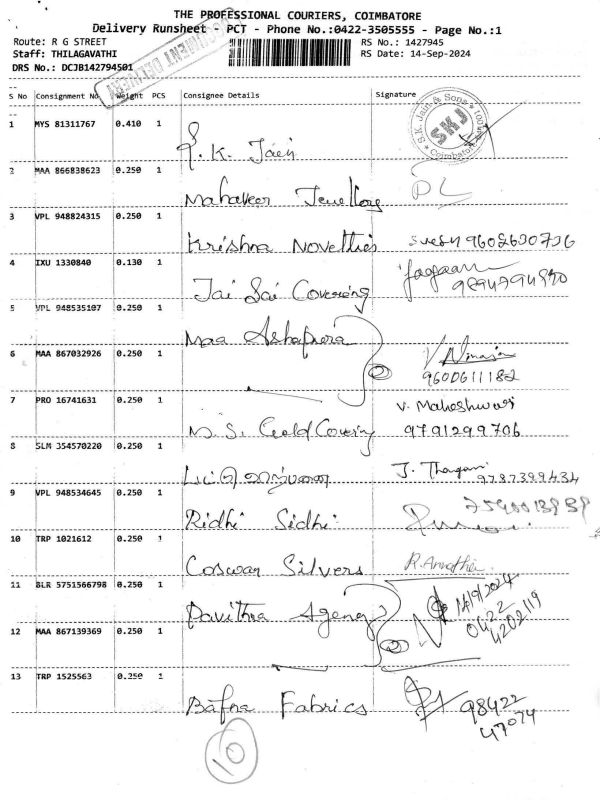 THE PROFESSIONAL COURIERS, COIMBATORE
Delivery Runsheet - PCT - Phone No.:0422-3505555 - Page No.:1
Route: R G STREET
RS No.: 1427945
Staff: THILAGAVATHI
RS Date: 14-Sep-2024
DRS No.: DCJB142794501
S No Consignment No Weight PCS Consignee Details Signature
1 MYS 81311767 0.410 1
S.K. Jain & Sons
SKJ
Coimbatore
S. K. Jain
2 MAA 866838623 0.250 1
Mahaveer Jewellery
3 VPL 948824315 0.250 1
Krishna Novelties 9602630736
4 IXU 1330840 0.130 1
Jai Sai Covering
9894794990
5 VPL 948535107 0.250 1
Maa Ashapura
6 MAA 867032926 0.250 1
9600611182
7 PRO 16741631 0.250 1
V. Maheshwari
M.S. Gold Covering 9791299706
8 SLM 354570220 0.250 1
J. Thangam 9787399434
9 VPL 948534645 0.250 1
Ridhi Sidhi
10 TRP 1021612 0.250 1
Coswan Silvers
11 BLR 5751566798 0.250 1
14/9/2024
Pavithra Agency
0422
4202119
12 MAA 867139369 0.250 1
13 TRP 1525563 0.250 1
Bafna Fabrics 98422
47074
10